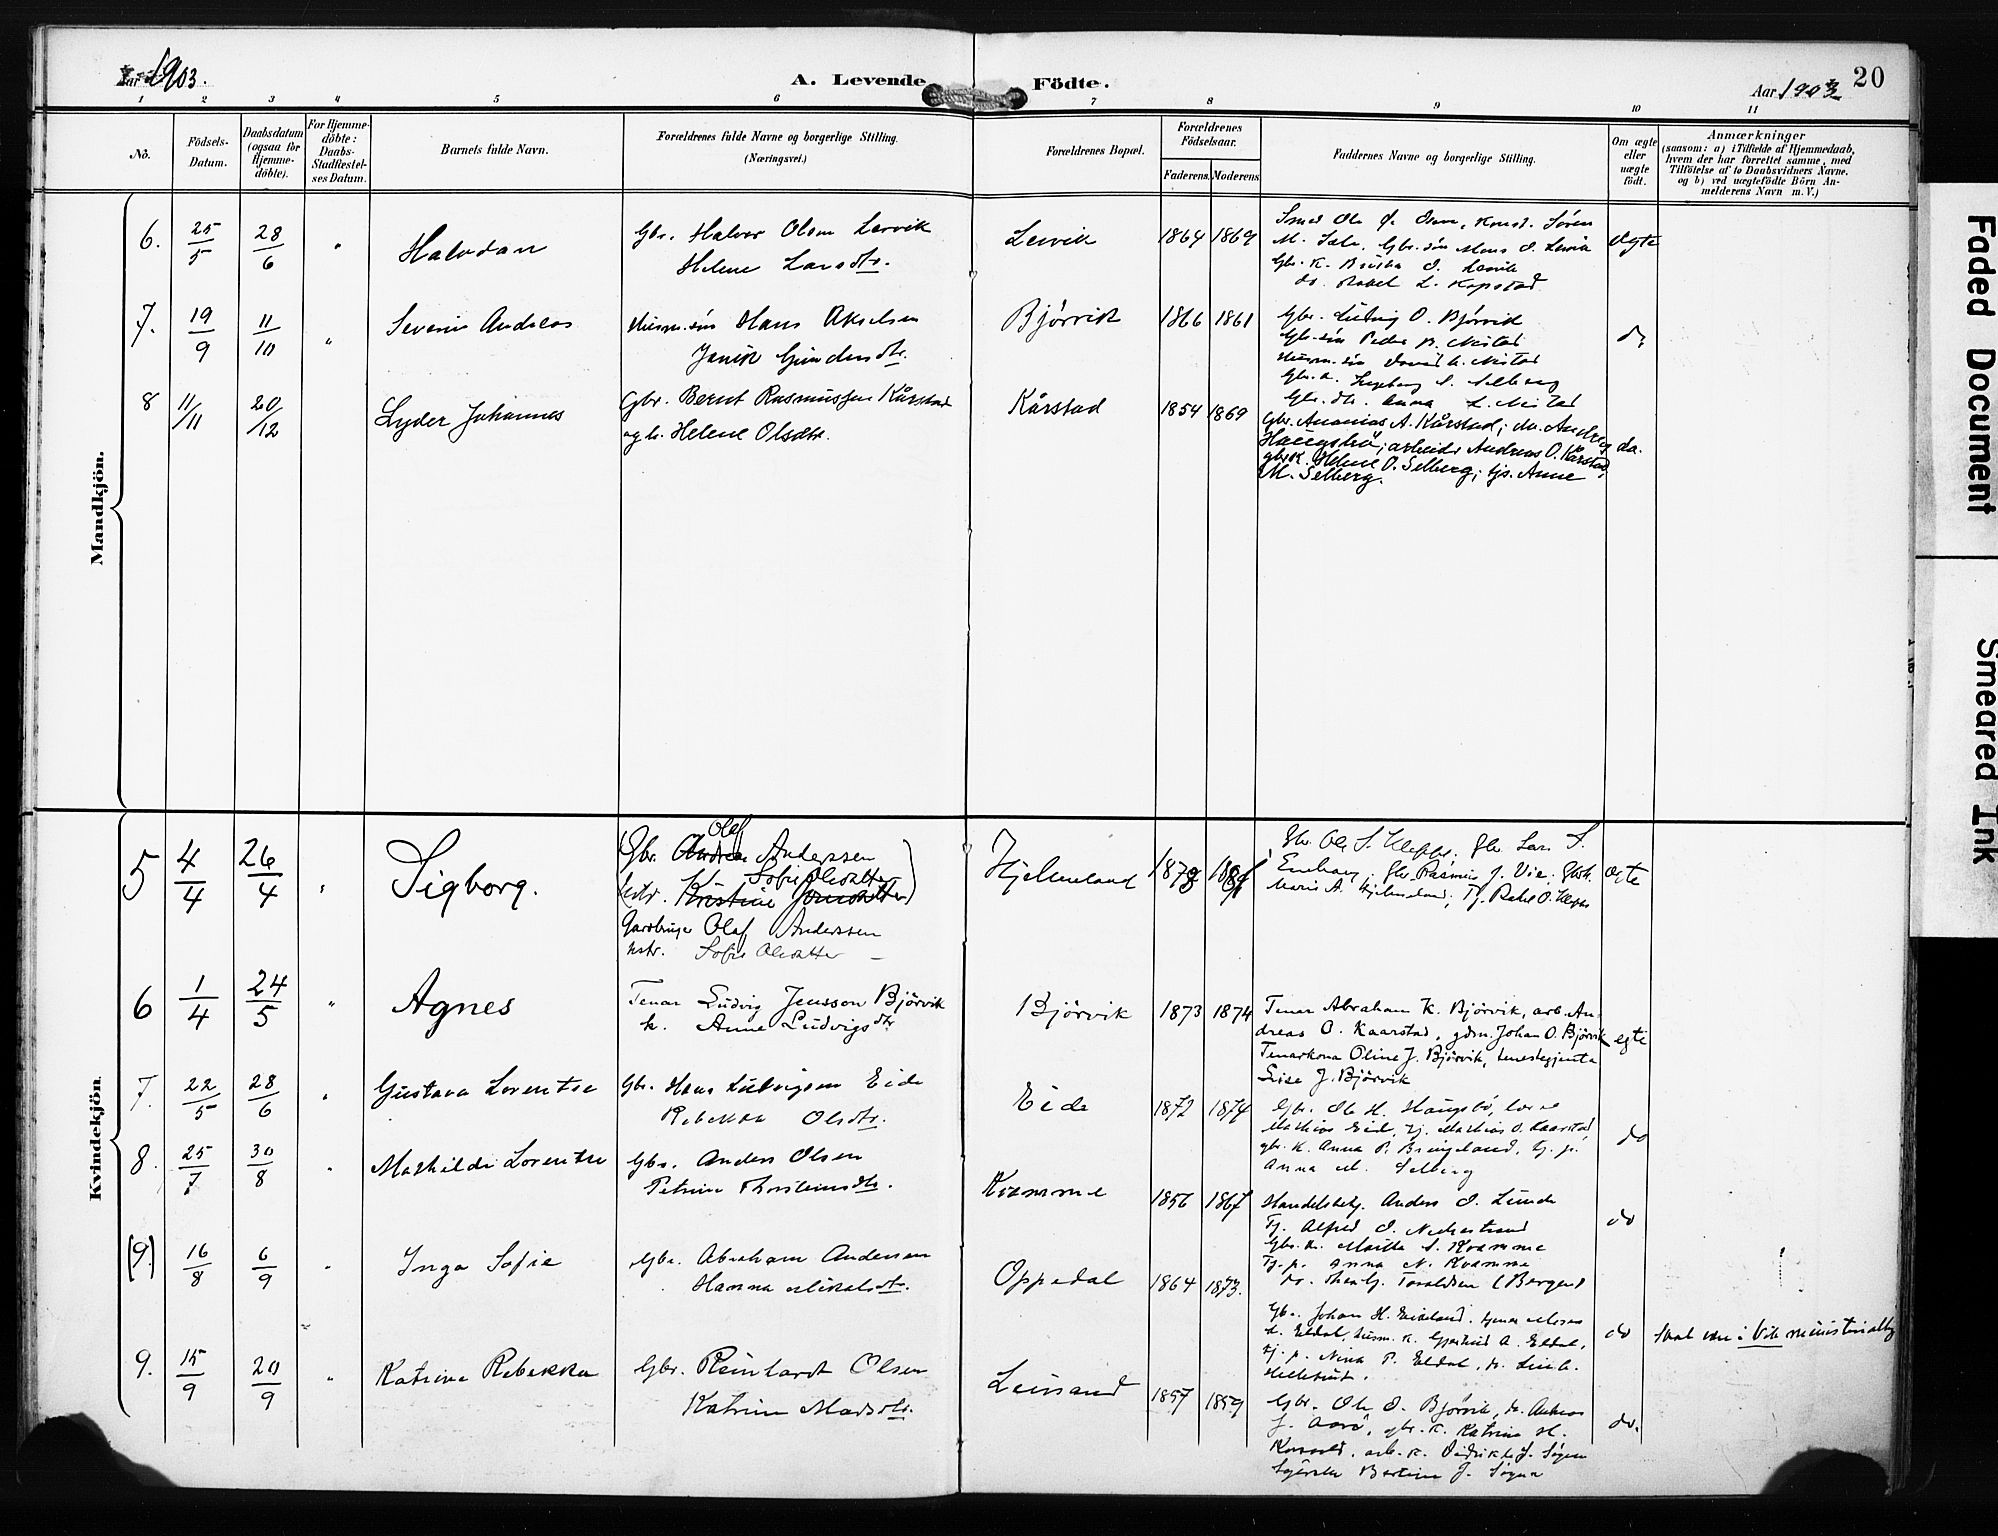 Aar 1903.
A. Levende Födte.
Aar 1903
20
1 2 3 4 5 6 7 8 9 10 11
No.
Födsels-Datum.
Daabsdatum (ogsaa for Hjemme-döbte).
For Hjemme-döbte: Daabs-Stadfæstel-ses Datum.
Barnets fulde Navn.
Forældrenes fulde Navne og borgerlige Stilling. (Næringsvei.)
Forældrenes Bopæl.
Forældrenes Födselsaar.
Faderens. Moderens.
Faddernes Navne og borgerlige Stilling.
Om ægte eller uægte födt.
Anmærkninger
(saasom: a) i Tilfælde af Hjemmedaab,
hvem der har forrettet samme, med
Tilföielse af to Daabsvidners Navne.
og b) ved uægtefödte Börn An-
melderens Navn m. V.)
Mandkjön.
6. 25/5 28/6 " Halvdan
Gbr. Halvor Olsen Leivik
Helene Larsdtr.
Leivik 1864 1869
M. Sæle, Gbr. søn Mons O. Leivik
do. Rakel L. Kapstad
Ægte
7. 19/9 11/10 " Severin Andreas
Husm. søn Hans Akselsen
Bjørvik 1866 1861
Gbr. Ludvig O. Bjørvik
Gbr. søn Peder R. Nistad
Gbr. k. Ingeborg S. Selberg
Gbr. dtr. Anna L. Nistad
do
8 11/11 20/12 Lyder Johannes
Gbr. Bernt Rasmussen Kårstad
og h. Helene Olsdtr.
Kårstad 1854 1869
Gbr. Ananias A. Kårstad; M. Andreas
Haugsbø; arbeider Andreas O. Kårstad,
gbr.k. Helene O. Selberg; tjp. Anne
M. Selberg.
do.
Kvindekjön.
5 4/4 26/4 " Sigborg.
Olaf
(Gbr. Andrea Anderssen
Sofie Olsdatter
hstr. Kristine Jonsdatter)
Gardbruger Olaf Anderssen
hstr. Sofie Olsdatter
Hjelmeland
Gbr. Ole S. Kleppe; Gbr. Lars S.
Gbr. Rasmus J. Vie; Gbrk.
Marie A. Hjelmeland; Tj. Rakel O. Kleppe
egte
6 1/4 24/5 " Agnes
Tenar Ludvig Jensson Bjørvik
k. Anne Ludvigsdtr
Bjørvik 1873 1874
Tenar Abraham K. Bjørvik, arb. An-
dreas O. Kaarstad, gdm. Johan O. Bjørvik
Tenarkona Oline J. Bjørvik, tenestegjenta
Lise J. Bjørvik
egte
7. 22/5 28/6 " Gustava Lorentse
Gbr. Hans Ludvigsen Eide
Rebekka Olsdtr.
Eide 1872 1874
Gbr. Ole H. Haugsbø,
Mathias Eide, tj. Mathias O. Kaarstad,
gbr. k. Anna P. Bringeland, tj. p.
Anna M. Selberg
do
8. 25/7 30/8 " Mathilde Lorentse
Gbr. Anders Olsen
Petrine Thorsteinsdtr.
Kvamme 1856 1867
Handelsbetj. Anders O. Lunde
Tj. Alfred O. Nedrestrand
Gbr. k. Marta S. Kvamme
Tj. p. Anna N. Kvamme
do. Toraldsen (Bergen)
do
(9.) 16/8 6/9 " Inga Sofie
Gbr. Abraham Andersen
Hanna Mikalsdtr.
Oppedal 1864 1873.
Gbr. Johan H. Eikeland,
k. Eldal, husm. k. Gjertrud A. Eldal,
tj. p. Nina P. Eldal,
do
Skal være i Vik ministerialbog
9. 15/9 20/9 " Katrine Rebekka
Gbr. Reinhardt Olsen
Katrine Madsdtr.
Leirsand 1857 1859
Gbr. Ole O. Bjørvik, do. Andreas
J. Aarø, gbr. k. Katrine H.
arb. k. Didrikke J. Søgnen
Bertine J. Søgnen
do.
Faded Document
Smeared Ink